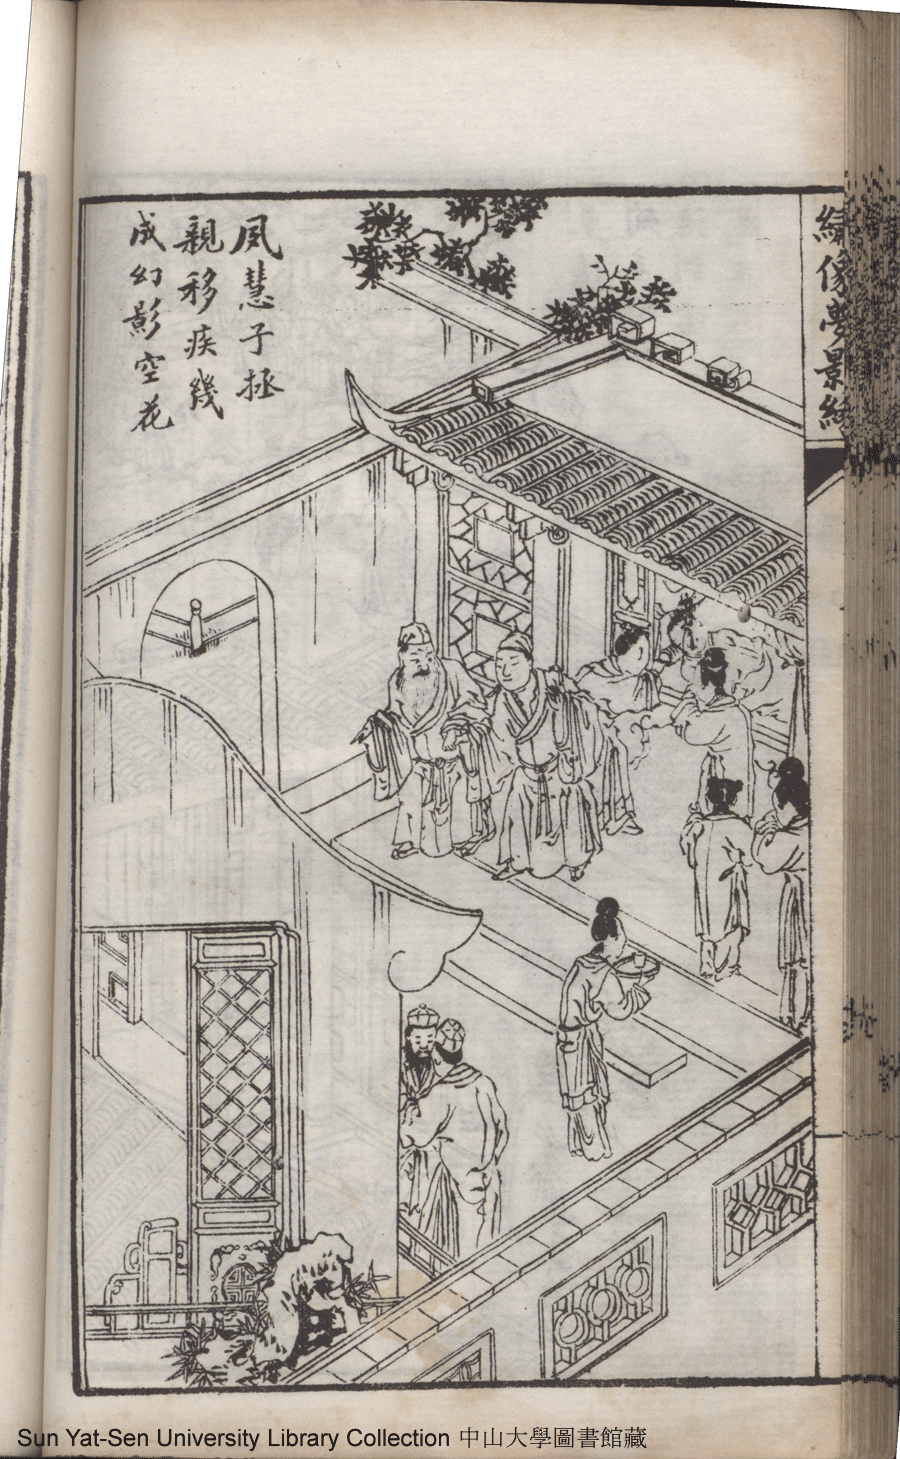 繡像夢景緣
夙慧子拯
親移疾幾
成幻影空花
Sun Yat-Sen University Library Collection 中山大學圖書館藏